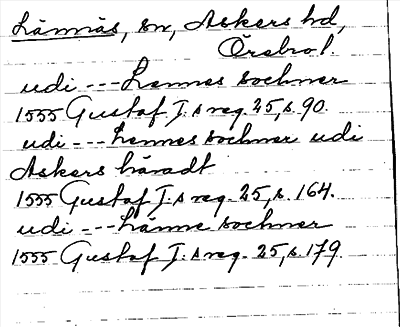 Lännäs, sn, Askers hd,
Örebro l.
udi --- Lennes sochner
1555 Gustaf I:s reg. 25, s. 90.
udi --- Lennes sochner udi
Askers häradt
1555 Gustaf I:s reg. 25, s. 164.
udi --- Länne sochner
1555 Gustaf I:s reg. 25, s. 179.